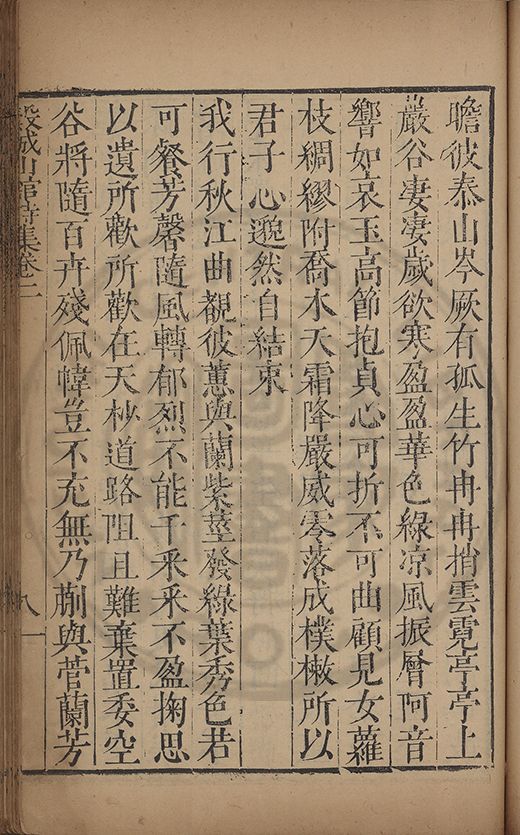 瞻彼泰山岑厥有孤生竹冉冉捎雲霓亭亭上
巖谷凄凄歲欲寒盈盈華色綠凉風振層阿音
響如哀玉高節抱貞心可折不可曲顧見女蘿
枝綢繆附喬木天霜降嚴威零落成樸樕所以
君子心邈然自結束
我行秋江曲覩彼蕙與蘭紫莖發綠葉秀色若
可餐芳馨隨風轉郁烈不能干采采不盈掬思
以遺所歡所歡在天杪道路阻且難棄置委空
谷將隨百卉殘佩幃豈不充無乃蒯與菅蘭芳
穀城山館詩集卷二
八